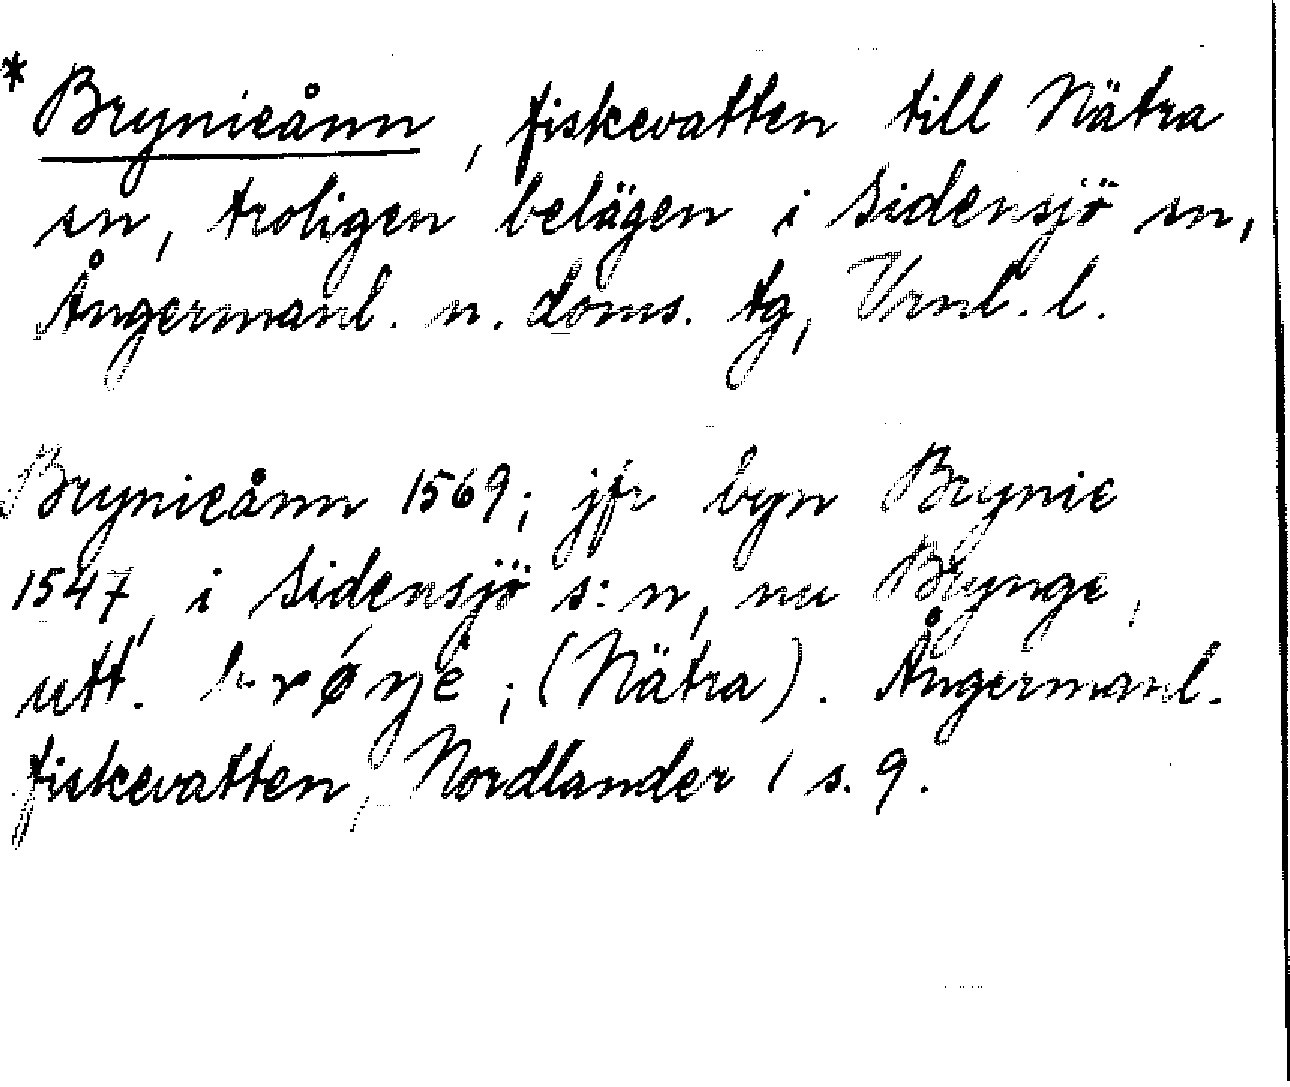 * Brynieånn, fiskevatten till Nätra
sn, troligen belägen i Sidensjö sn,
Ångermanl. n. doms. tg, Vrnl. l.
Brynieånn 1569; jfr byn Brynie
1547, i Sidensjö s:n, nu Brynge,
utt. brønje; (Nätra). Ångermanl.
fiskevatten, Nordlander 1 s. 9.